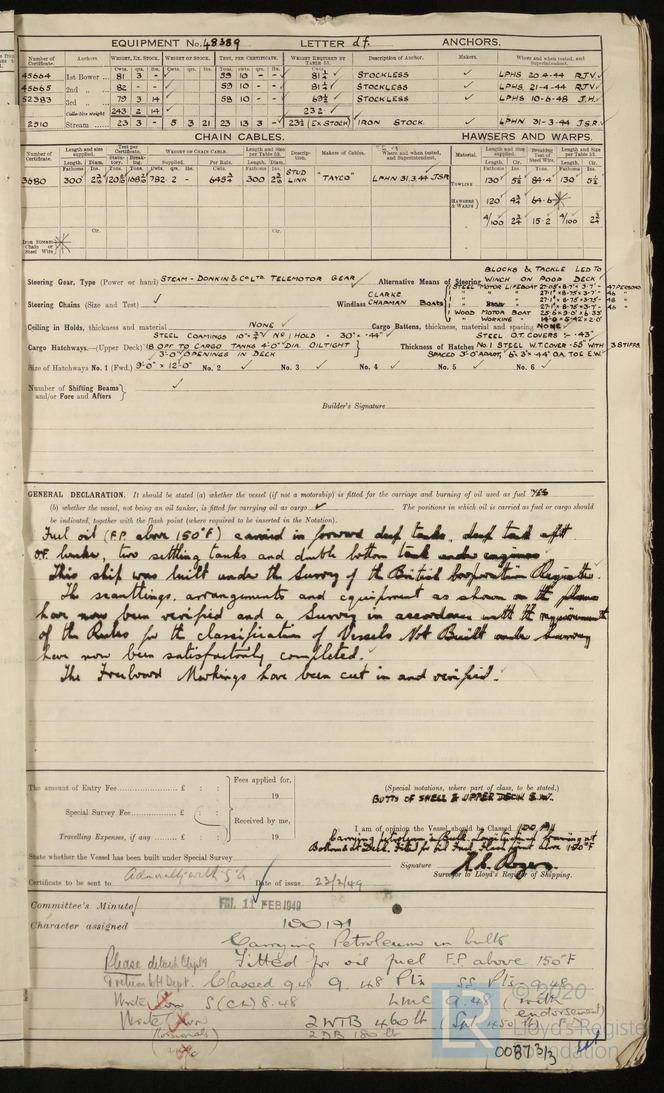 EQUIPMENT No. 48389 LETTER df. ANCHORS.
Number of Certificate. Anchors. WEIGHT, EX. STOCK. WEIGHT OF STOCK. TEST, PER CERTIFICATE. WEIGHT REQUIRED BY TABLE 53. Description of Anchor. Makers. Where and when tested, and Superintendent.
45664 1st Bower 81 3 - 59 10 - - 81¼ STOCKLESS LPHS 20.4.44 R.J.V.
45665 2nd 82 - - 59 10 - - 81¼ STOCKLESS LPHS. 21.4.44 R.J.V.
52383 3rd 79 3 14 58 10 - - 69½ STOCKLESS LPHS 10.6.48 J.H.
Collective weight 243 2 14 232
2510 Stream 23 3 - 5 3 21 23 13 3 - 23½ (EX STOCK) IRON STOCK. LPHN 31.3.44 J.S.R.
CHAIN CABLES. HAWSERS AND WARPS.
Number of Certificate. Length and size supplied. Test per Certificate. WEIGHT OF CHAIN CABLE. Length and size per Table 53. Description. Makers of Cables. Where and when tested, and Superintendent. Material. Length and size supplied. Breaking Test of Steel Wire. Length and size per Table 53.
3680 300 782 . 2 - 300 STUD LINK "TAYCO" LPHN 31.3.44 JSR TOWLINE 130 5½ 84.4 130 5½
HAWSERS & WARPS 120 4¾ 64.6
4/100 2¾ 15.2 4/100 2¾
Iron Stream Chain or Steel Wire
Steering Gear, Type (Power or hand) STEAM - DONKIN & Co LTD TELEMOTOR GEAR Alternative Means of Steering BLOCKS & TACKLE LED TO WINCH ON POOP DECK
Steering Chains (Size and Test) Windlass CLARKE CHAPMAN Boats
1 STEEL MOTOR LIFEBOAT 27.05 × 8.7 × 3.7 - 47 PERSONS
1 WOOD MOTOR BOAT
1 " WORKING "
Ceiling in Holds, thickness and material NONE Cargo Battens, thickness, material and spacing NONE
STEEL COAMINGS 10" × ¾" No 1 HOLD × 30" × .44" STEEL O.T. COVERS :- .43"
Cargo Hatchways.—(Upper Deck) 18 OFF TO CARGO TANKS 4'-0" DIA. OILTIGHT Thickness of Hatches No. 1 STEEL W.T. COVER .55" WITH 3 STIFFS
3'-0" OPENINGS IN DECK SPACED 3'-0" APART, 6" × 3" × .44" O.A. TOE E.W.
Size of Hatchways No. 1 (Fwd.) 9'-0" × 12'-0" No. 2 No. 3 No. 4 No. 5 No. 6
Number of Shifting Beams and/or Fore and Afters
Builder's Signature
GENERAL DECLARATION. It should be stated (a) whether the vessel (if not a motorship) is fitted for the carriage and burning of oil used as fuel YES
(b) whether vessel, not being an oil tanker, is fitted for carrying oil as cargo The positions in which oil is carried as fuel or cargo should
be indicated, together with the flash point (where required to be inserted in the Notation).
Fuel oil (F.P. above 150°F) carried in forward deep tanks, deep tank aft
O.F. bunker, two settling tanks and double bottom tank under engines
This ship was built under the Survey of the British Corporation Register.
The scantlings, arrangements and equipment as shown on the plans
have now been verified and a Survey in accordance with the requirements
of the Rules for the classification of Vessels Not Built under Survey
have now been satisfactorily completed.
The Freeboard Markings have been cut in and verified.
The amount of Entry Fee £ : : Fees applied for,
19
Special Survey Fee £ : : Received by me,
19
Travelling Expenses, if any £ : :
(Special notations, where part of class, to be stated.)
BUTTS OF SHELL & UPPER DECK E.W.
I am of opinion the Vessel should be Classed 100 A1
Carrying petroleum in Bulk. Longitudinal framing at
Bottom & at Deck. Fitted for oil Fuel, Flash point above 150°F
State whether the Vessel has been built under Special Survey
Signature
Surveyor to Lloyd's Register of Shipping.
Certificate to be sent to Date of issue 23/2/49
Committee's Minute FRI. 11 FEB 1949
Character assigned 100A1
Carrying Petroleum in bulk
Please detach Fitted for oil fuel F.P. above 150°F
Classed 9.48
S(CL) 8.48 LMC 9.48 (with endorsement)
2WTB 460 lb (Spt 450 lb)
2DB 180 lb
© 2020
Lloyd's Register
Foundation